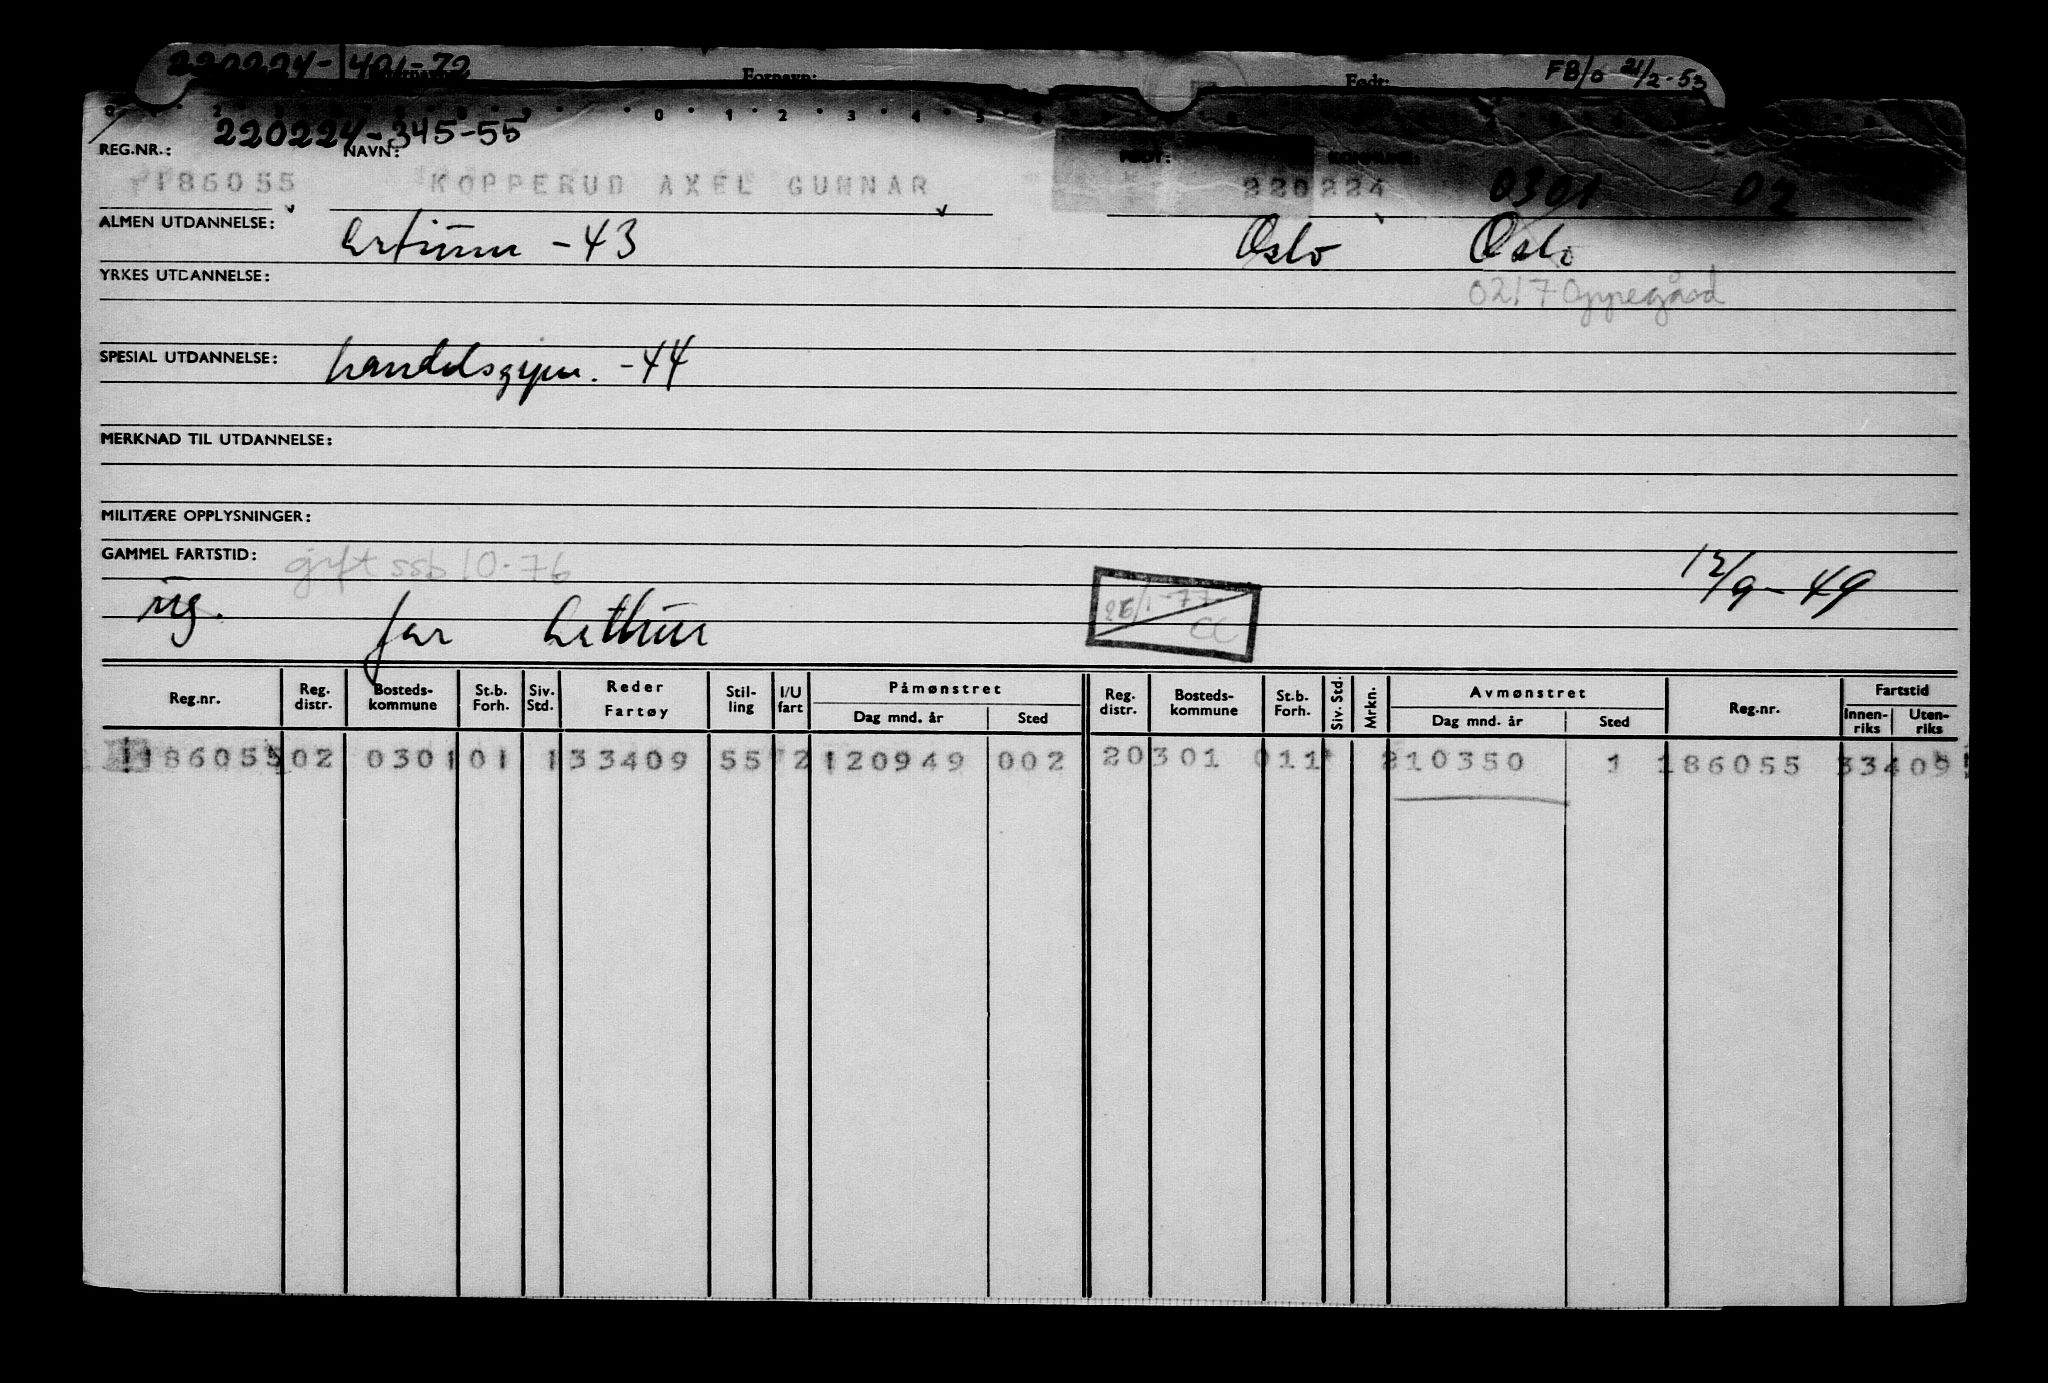 220224- 401-72 Fornavn: Født: FB/o 21/2-53
220224-345-55
REG.NR.: NAVN: FØDT:
186055 KOPPERUD AXEL GUNNAR 220224 0301 02
ALMEN UTDANNELSE: artium -43 Oslo Oslo
YRKES UTDANNELSE: 0217 Oppegård
SPESIAL UTDANNELSE: handelsgym. -44
MERKNAD TIL UTDANNELSE:
MILITÆRE OPPLYSNINGER:
GAMMEL FARTSTID: gift ssb 10-76 12/9-49
ug. far Arthur 25/1-77 CC
Reg.nr. Reg. distr. Bosteds- kommune St.b. Forh. Siv. Std. Reder Fartøy Stil- ling I/U fart Påmønstret Dag mnd. år Sted Reg. distr. Bosteds- kommune St.b. Forh. Siv. Std. Mrkn. Avmønstret Dag mnd. år Sted Reg.nr. Fartstid Innen- riks Uten- riks
186055 02 0301 01 1 33409 55 2 120949 002 20301 011 210350 1 186055 33409